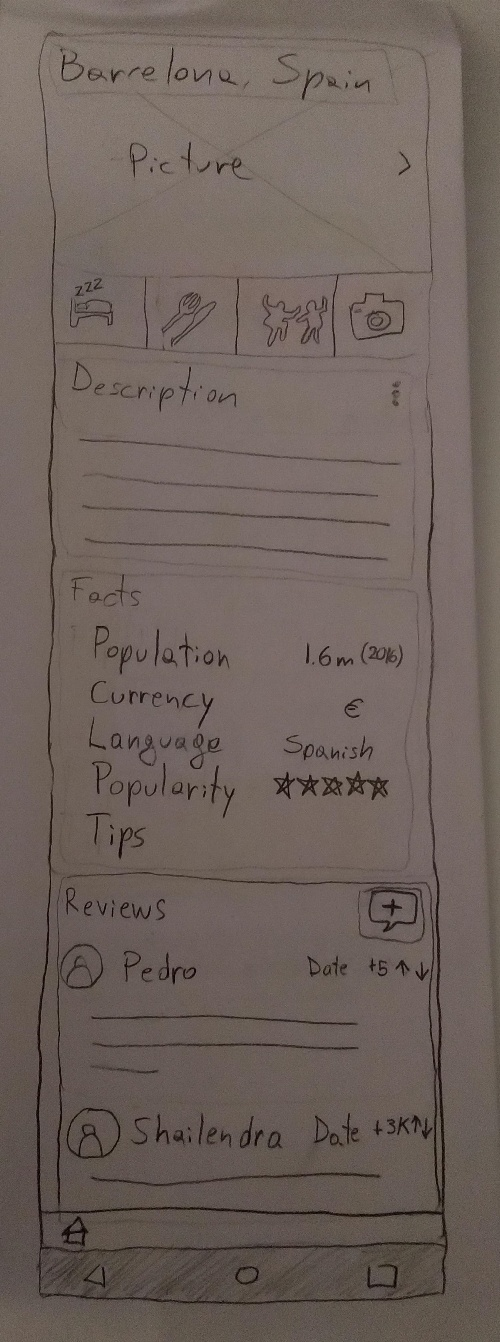 Barcelona, Spain
Picture >
zzz
Description
Facts
Population 1.6m (2016)
Currency €
Language Spanish
Popularity ☆☆☆☆☆
Tips
Reviews +
Pedro Date +5 ↑↓
Shailendra Date +3K↑↓